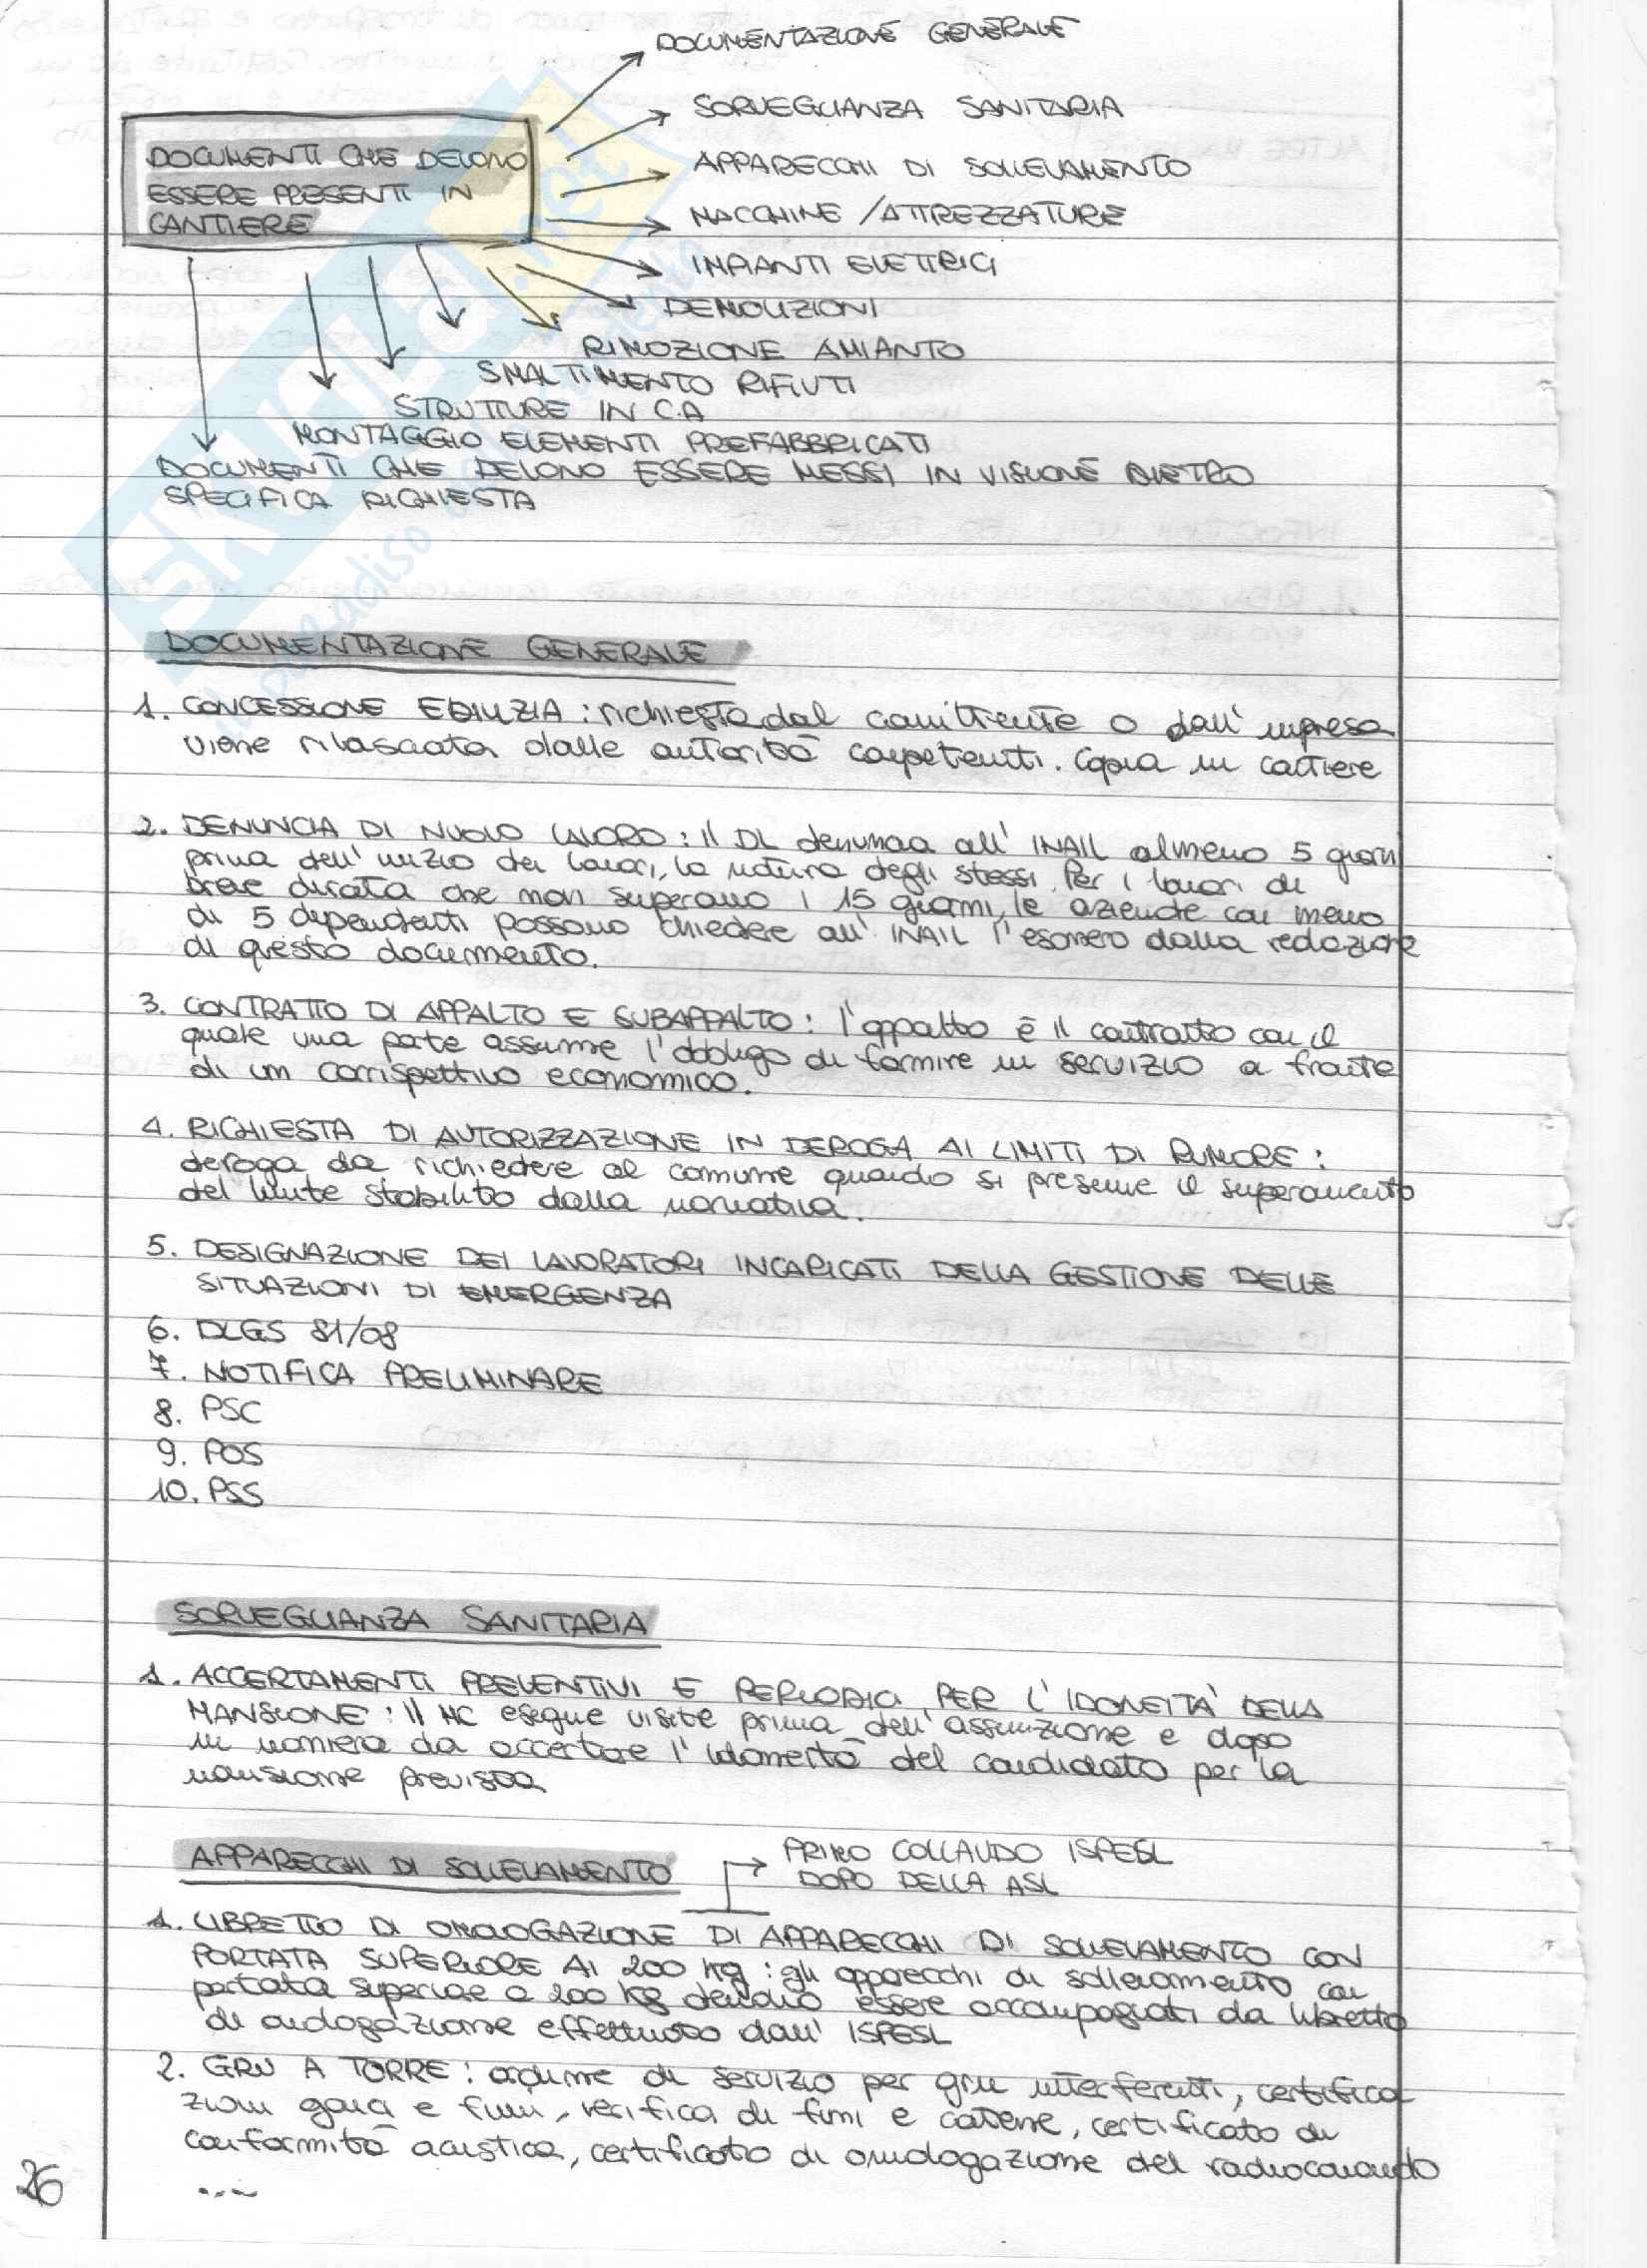 DOCUMENTAZIONE GENERALE
SORVEGLIANZA SANITARIA
DOCUMENTI CHE DEVONO
ESSERE PRESENTI IN
CANTIERE
APPARECCHI DI SOLLEVAMENTO
MACCHINE / ATTREZZATURE
IMPIANTI ELETTRICI
DEMOLIZIONI
RIMOZIONE AMIANTO
SMALTIMENTO RIFIUTI
STRUTTURE IN C.A
MONTAGGIO ELEMENTI PREFABBRICATI
DOCUMENTI CHE DEVONO ESSERE MESSI IN VISIONE DIETRO
SPECIFICA RICHIESTA
SKUOLA.net
il paradiso
DOCUMENTAZIONE GENERALE
1. CONCESSIONE EDILIZIA : richiesta dal committente o dall' impresa
viene rilasciata dalle autorità competenti. Copia in cantiere
2. DENUNCIA DI NUOVO LAVORO : il DL denuncia all' INAIL almeno 5 giorni
prima dell' inizio dei lavori, la natura degli stessi. Per i lavori di
breve durata che non superano i 15 giorni, le aziende con meno
di 5 dipendenti possono chiedere all' INAIL l'esonero dalla redazione
di questo documento.
3. CONTRATTO DI APPALTO E SUBAPPALTO : l'appalto è il contratto con il
quale una parte assume l'obbligo di fornire un servizio a fronte
di un corrispettivo economico.
4. RICHIESTA DI AUTORIZZAZIONE IN DEROGA AI LIMITI DI RUMORE :
deroga da richiedere al comune quando si presume il superamento
del limite stabilito dalla normativa.
5. DESIGNAZIONE DEI LAVORATORI INCARICATI DELLA GESTIONE DELLE
SITUAZIONI DI EMERGENZA
6. DLGS 81/08
7. NOTIFICA PRELIMINARE
8. PSC
9. POS
10. PSS
SORVEGLIANZA SANITARIA
1. ACCERTAMENTI PREVENTIVI E PERIODICI PER L'IDONEITÀ DELLA
MANSIONE : Il MC esegue visite prima dell' assunzione e dopo
in maniera da accertare l'idoneità del candidato per la
mansione prevista
APPARECCHI DI SOLLEVAMENTO
PRIMO COLLAUDO ISPESL
DOPO DELLA ASL
1. LIBRETTO DI OMOLOGAZIONE DI APPARECCHI DI SOLLEVAMENTO CON
PORTATA SUPERIORE AI 200 kg : gli apparecchi di sollevamento con
portata superiore a 200 kg devono essere accompagnati da libretto
di omologazione effettuato dall' ISPESL
2. GRU A TORRE : ordine di servizio per gru interferenti, certifica
zioni ganci e funi, verifica di funi e catene, certificato di
conformità acustica, certificato di omologazione del radiocomando
...
26